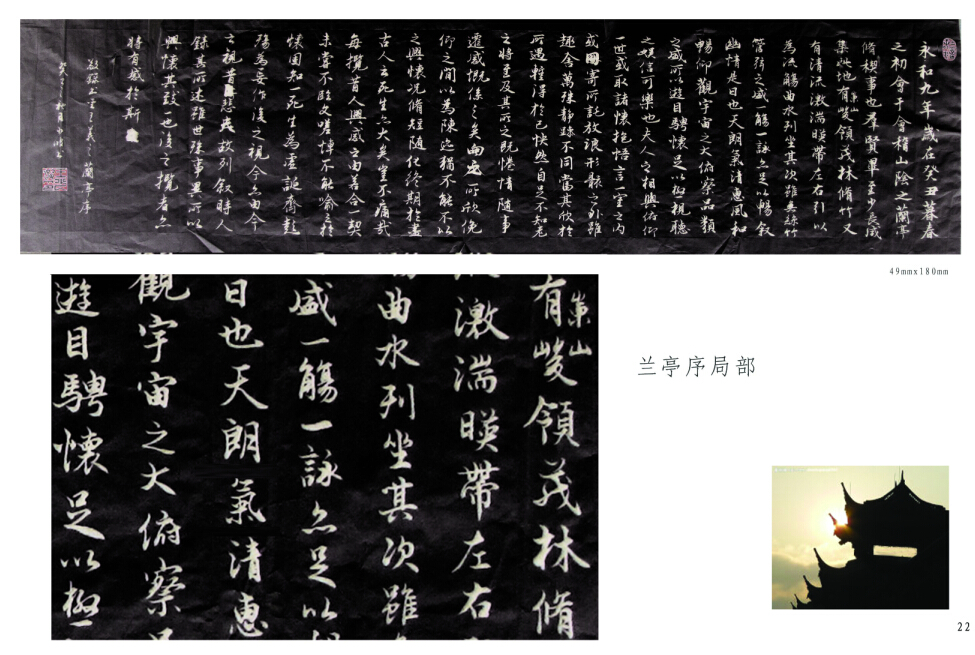 永和九年歲在癸丑暮春
之初會于會稽山陰之蘭亭
脩禊事也羣賢畢至少長咸
集此地有崇山峻領茂林脩竹又
有清流激湍暎帶左右引以
為流觴曲水列坐其次雖無絲竹
管弦之盛一觴一詠亦足以暢敘
幽情是日也天朗氣清惠風和
暢仰觀宇宙之大俯察品類
之盛所以遊目騁懷足以極視聽
之娛信可樂也夫人之相與俯仰
一世或取諸懷抱悟言一室之內
或因寄所託放浪形骸之外雖
趣舍萬殊靜躁不同當其欣於
所遇暫得於己快然自足不知老
之將至及其所之既惓情隨事
遷感慨係之矣向之所欣俛
仰之間以為陳迹猶不能不以
之興懷況脩短隨化終期於盡
古人云死生亦大矣豈不痛哉
每攬昔人興感之由若合一契
未嘗不臨文嗟悼不能喻之於
懷固知一死生為虛誕齊彭
殤為妄作後之視今亦由今
之視昔悲夫故列叙時人
錄其所述雖世殊事異所以
興懷其致一也後之攬者亦
將有感於斯
敬臨書聖王羲之蘭亭序
49mmx180mm
有崇山峻領茂林脩
激湍暎帶左右
曲水列坐其次雖
盛一觴一詠亦足以
日也天朗氣清惠
觀宇宙之大俯察
遊目騁懷足以極
兰亭序局部
22